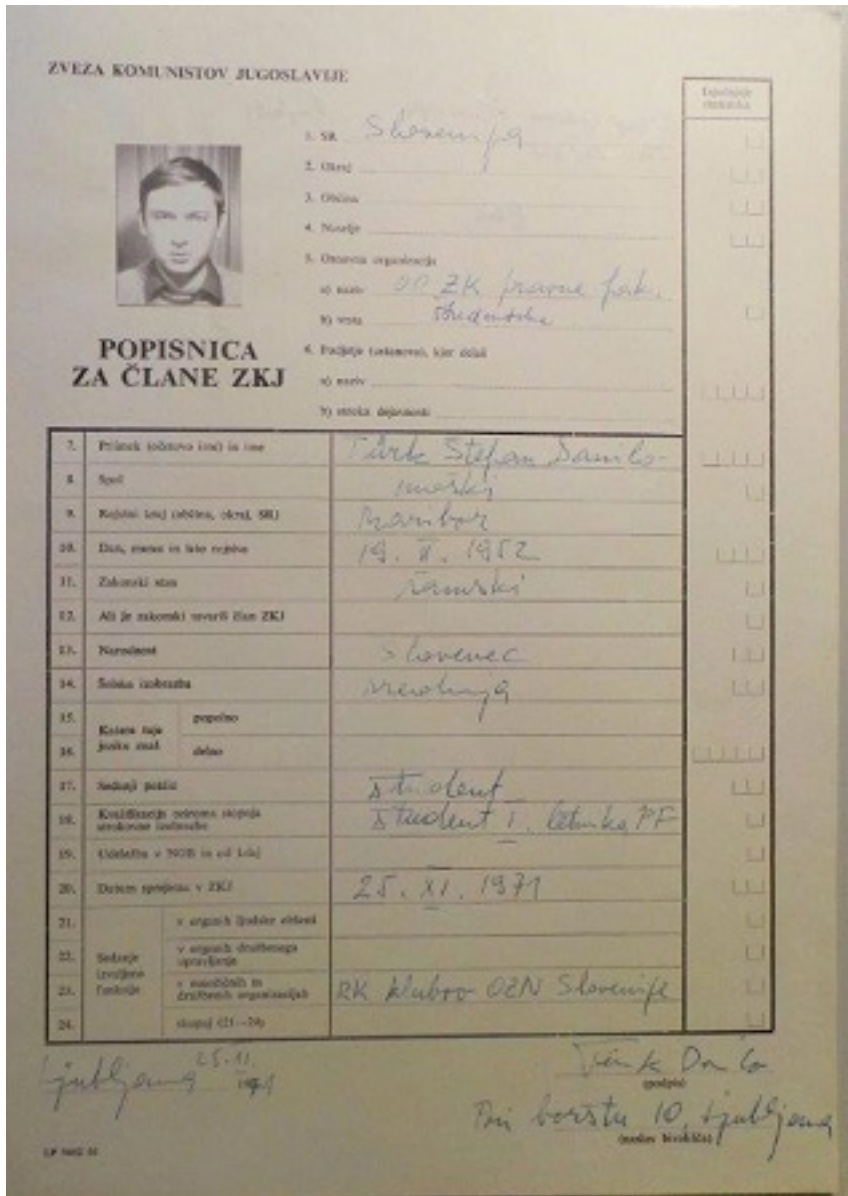 ZVEZA KOMUNISTOV JUGOSLAVIJE
1. SR Slovenija
2. Okraj
3. Občina
4. Naselje
5. Osnovna organizacija
a) naziv OO ZK pravne fak.
b) vrsta študentska
POPISNICA
ZA ČLANE ZKJ
6. Podjetje (ustanova), kjer delaš
a) naziv
b) stroka dejavnosti
7. Priimek (očetovo ime) in ime Türk Štefan Danilo
8. Spol moški
9. Rojstni kraj (občina, okraj, SR) Maribor
10. Dan, mesec in leto rojstva 19. II. 1952
11. Zakonski stan samski
12. Ali je zakonski tovariš član ZKJ
13. Narodnost Slovenec
14. Šolska izobrazba srednja
15. Katere tuje jezike znaš popolno
16. delno
17. Sedanji poklic študent
18. Kvalifikacija oziroma stopnja strokovne izobrazbe študent I. letnika PF
19. Udeležba v NOB in od kdaj
20. Datum sprejema v ZKJ 25. XI. 1971
21. v organih ljudske oblasti
22. Sedanje izvoljene funkcije v organih družbenega upravljanja
23. v množičnih in družbenih organizacijah RK klubov OZN Slovenije
24. skupaj (21—24)
Ljubljana 25.11. 1971
Türk Danilo
(podpis)
Pri borštu 10, Ljubljana
(naslov bivališča)